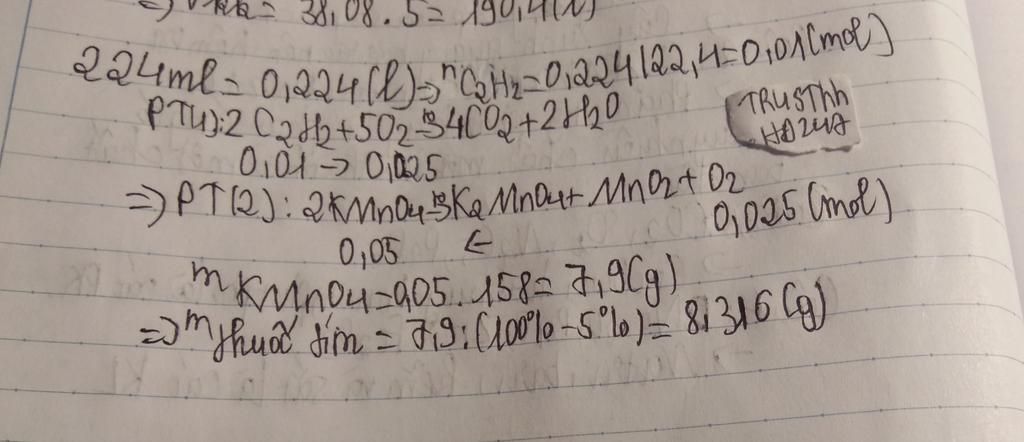 = 38,08.5=190,4(l)
224ml= 0,224(l)=> nC2H2=0,224:22,4=0,01(mol)
PT(1):2C2H2+5O2->4CO2+2H2O
TRUSThh
HĐ247
0,01 -> 0,025
=> PT(2): 2KMnO4->K2MnO4+ MnO2+ O2
0,05 <- 0,025(mol)
mKMnO4=0,05.158= 7,9(g)
=> mthuốc tím = 7,9:(100%-5%)= 8,316(g)